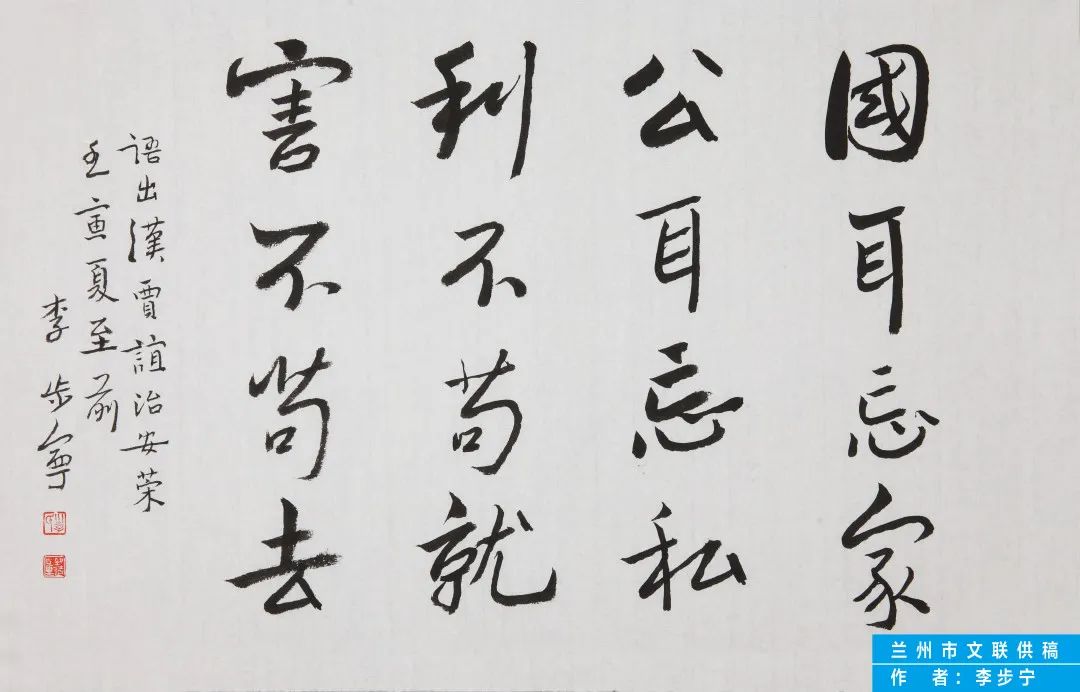 國耳忘家
公耳忘私
利不苟就
害不苟去
語出漢賈誼治安策
壬寅夏至前
李步寧
兰州市文联供稿
作 者：李步宁